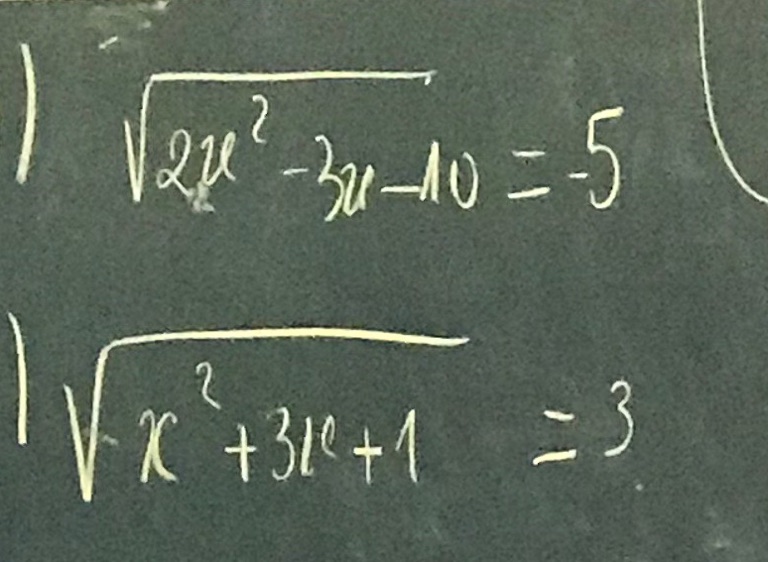 ) √(2x² - 3x - 10) = -5
) √(x² + 3x + 1) = 3